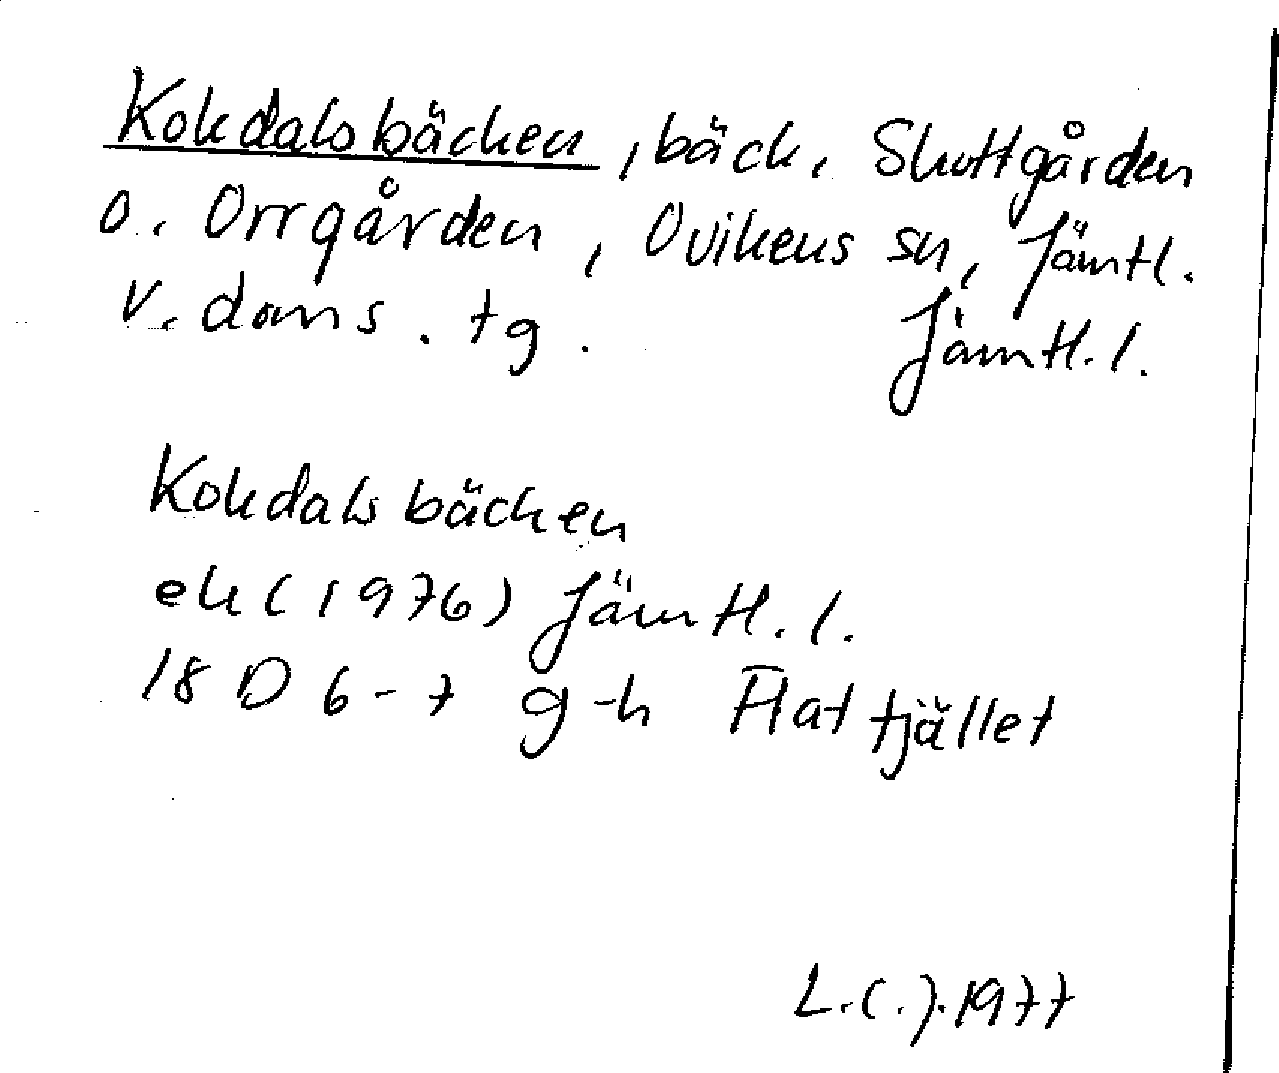 Kokdalsbäcken, bäck, Skottgården
o. Orrgården, Ovikens sn, Jämtl.
v. doms. tg. Jämtl. l.
Kokdalsbäcken
ek (1976) Jämtl. l.
18 D 6-7 g-h Flatfjället
L.C.J. 1977